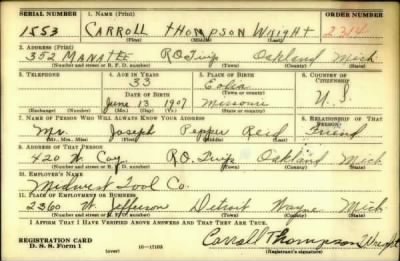 SERIAL NUMBER 1. NAME (Print) ORDER NUMBER
1553 CARROLL THOMPSON WRIGHT 2314
(First) (Middle) (Last)
2. ADDRESS (Print)
352 MANATEE R.O.Twp. Oakland Mich
(Number and street or R. F. D. number) (Town) (County) (State)
3. TELEPHONE 4. AGE IN YEARS 5. PLACE OF BIRTH 6. COUNTRY OF CITIZENSHIP
33 Eolia
DATE OF BIRTH (Town or county)
June 13 1907 Missouri U.S.
(Exchange) (Number) (Mo.) (Day) (Yr.) (State or country)
7. NAME OF PERSON WHO WILL ALWAYS KNOW YOUR ADDRESS 8. RELATIONSHIP OF THAT PERSON
Mr. Joseph Pepper Reid Friend
(Mr., Mrs., Miss) (First) (Middle) (Last)
9. ADDRESS OF THAT PERSON
420 W. Coy R.O. Twp. Oakland Mich
(Number and street or R. F. D. number) (Town) (County) (State)
10. EMPLOYER'S NAME
Midwest Tool Co.
11. PLACE OF EMPLOYMENT OR BUSINESS
2360 W. Jefferson Detroit Wayne Mich
(Number and street or R. F. D. number) (Town) (County) (State)
I AFFIRM THAT I HAVE VERIFIED ABOVE ANSWERS AND THAT THEY ARE TRUE.
REGISTRATION CARD
D. S. S. Form 1 (over) 16—17105 Carroll Thompson Wright
(Registrant's signature)